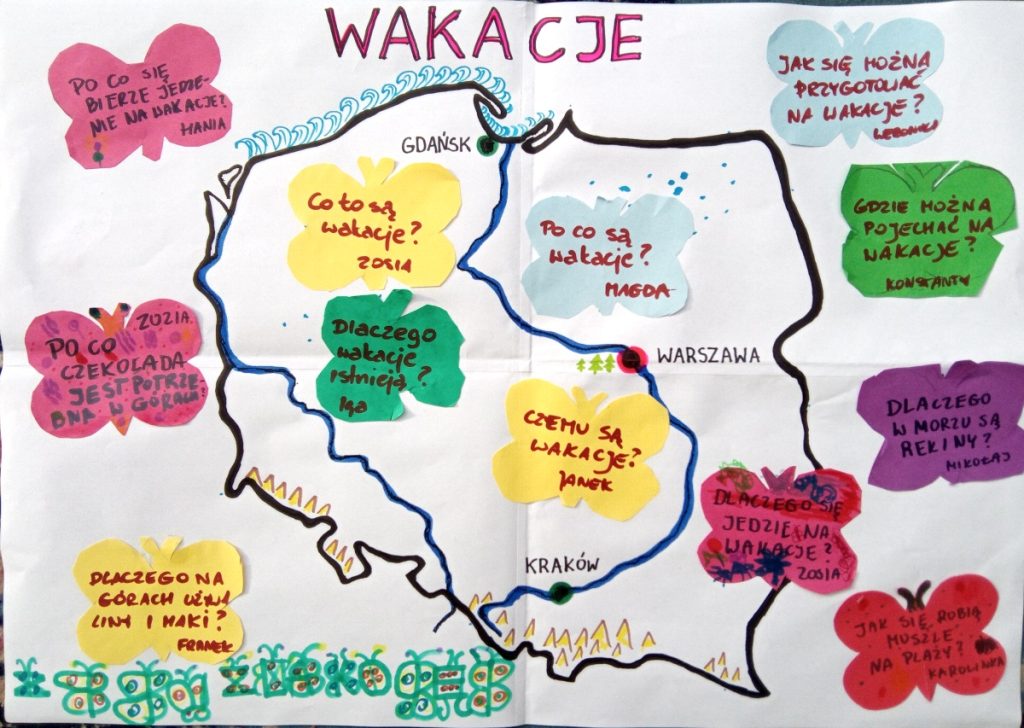 WAKACJE
PO CO SIĘ
BIERZE JEDZE-
NIE NA WAKACJE?
HANIA
JAK SIĘ MOŻNA
PRZYGOTOWAĆ
NA WAKACJE?
WERONIKA
GDAŃSK
Co to są
wakacje?
ZOSIA
Po co są
wakacje?
MAGDA
GDZIE MOŻNA
POJECHAĆ NA
WAKACJE?
KONSTANTY
ZUZIA
PO CO
CZEKOLADA
JEST POTRZE-
BNA W GÓRACH?
Dlaczego
wakacje
istnieją?
Iga
WARSZAWA
CZEMU SĄ
WAKACJE?
JANEK
DLACZEGO
W MORZU SĄ
REKINY?
MIKOŁAJ
DLACZEGO SIĘ
JEDZIE NA
WAKACJE?
ZOSIA
KRAKÓW
DLACZEGO NA
GÓRACH UŻYWA
LINY I HAKI?
FRANEK
JAK SIĘ ROBIĄ
MUSZLE
NA PLAŻY?
KAROLINKA